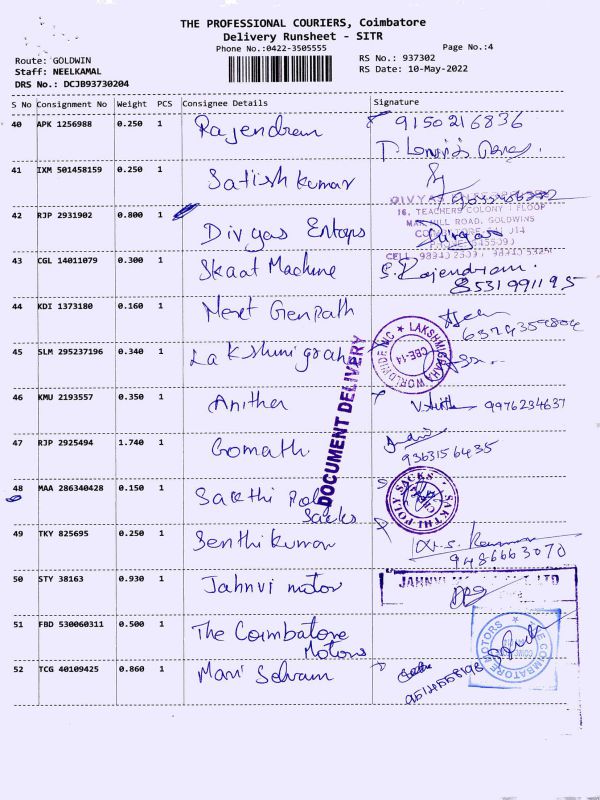 THE PROFESSIONAL COURIERS, Coimbatore
Delivery Runsheet - SITR
Phone No.:0422-3505555
Page No.:4
Route: GOLDWIN
RS No.: 937302
Staff: NEELKAMAL
RS Date: 10-May-2022
DRS No.: DCJB93730204
S No Consignment No Weight PCS Consignee Details Signature
40 APK 1256988 0.250 1 Rajendram 9150216836
41 IXM 501458159 0.250 1 Satish kumar
16, TEACHERS COLONY I FLOOR
MAK HILL ROAD, GOLDWINS
42 RJP 2931902 0.800 1 Divyas Entops
43 CGL 14011079 0.300 1 Skaat Machine S. Rajendram.
8531991195
44 KDI 1373180 0.160 1 Meret Genpath
45 SLM 295237196 0.340 1 Lakshmigraha
LAKSHMIGRAHA WORLDWIDE INC
CBE-14
DOCUMENT DELIVERY
46 KMU 2193557 0.350 1 Anitha 9976234637
47 RJP 2925494 1.740 1 Gomathi
9363156435
48 MAA 286340428 0.150 1 Sakthi Poly
Sacks
SAKTHI POLY SACKS
49 TKY 825695 0.250 1 Senthikumar
9486663070
50 STY 38163 0.930 1 Jahnvi motor
JAHNVI LTD
51 FBD 530060311 0.500 1 The Coimbatore
Motors
THE COIMBATORE MOTORS
52 TCG 40109425 0.860 1 Mani Selvam